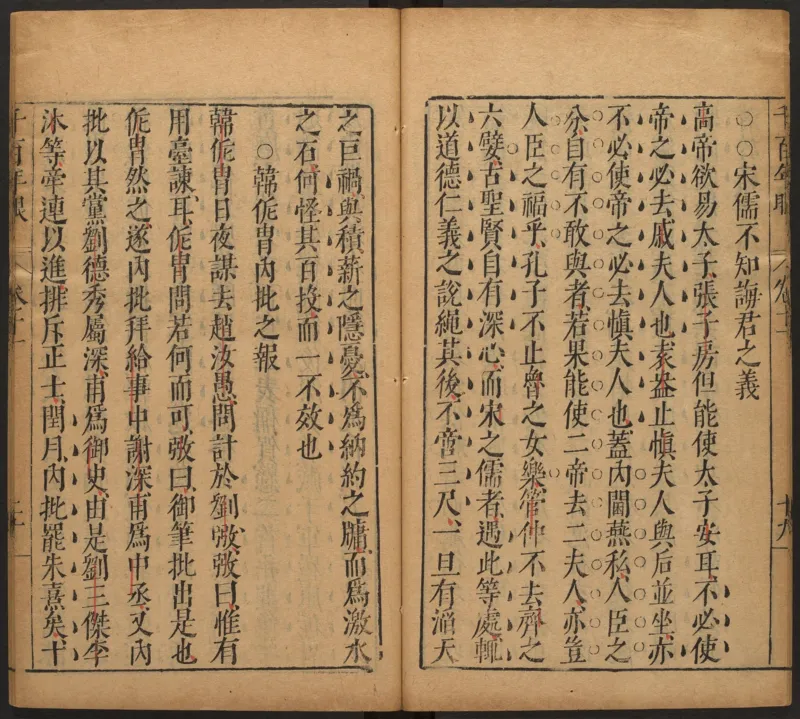 千百年眼 卷十一 十九
○○宋儒不知誨君之義
高帝欲易太子張子房但能使太子安耳不必使
帝之必去戚夫人也袁盎止愼夫人與后並坐亦
不必使帝之必去愼夫人也蓋內閫燕私人臣之
分自有不敢與者若果能使二帝去二夫人亦豈
人臣之福乎孔子不止魯之女樂管仲不去齊之
六嬖古聖賢自有深心而宋之儒者遇此等處輒
以道德仁義之說繩其後不啻三尺一旦有滔天
之巨禍與積薪之隱憂不爲納約之牖而爲激水
之石何怪其百投而一不效也
○韓侂冑內批之報
韓侂冑日夜謀去趙汝愚問計於劉㢸㢸曰惟有
用臺諫耳侂冑問若何而可㢸曰御筆批出是也
侂冑然之遂內批拜給事中謝深甫爲中丞又內
批以其黨劉德秀屬深甫爲御史由是劉三傑李
沐等牽連以進排斥正士閏月內批罷朱熹矣十
千百年眼 卷十一